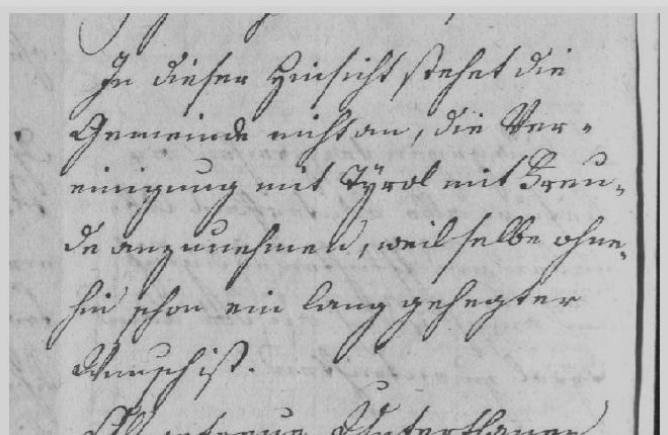 In dieser Hinsicht stehet die
Gemeinde nicht an, die Ver-
einigung mit Tyrol mit Freu-
de anzunehmen, weil selbe ohne-
hin schon ein lang gehegter
Wunsch ist.
Als getreue Unterthanen